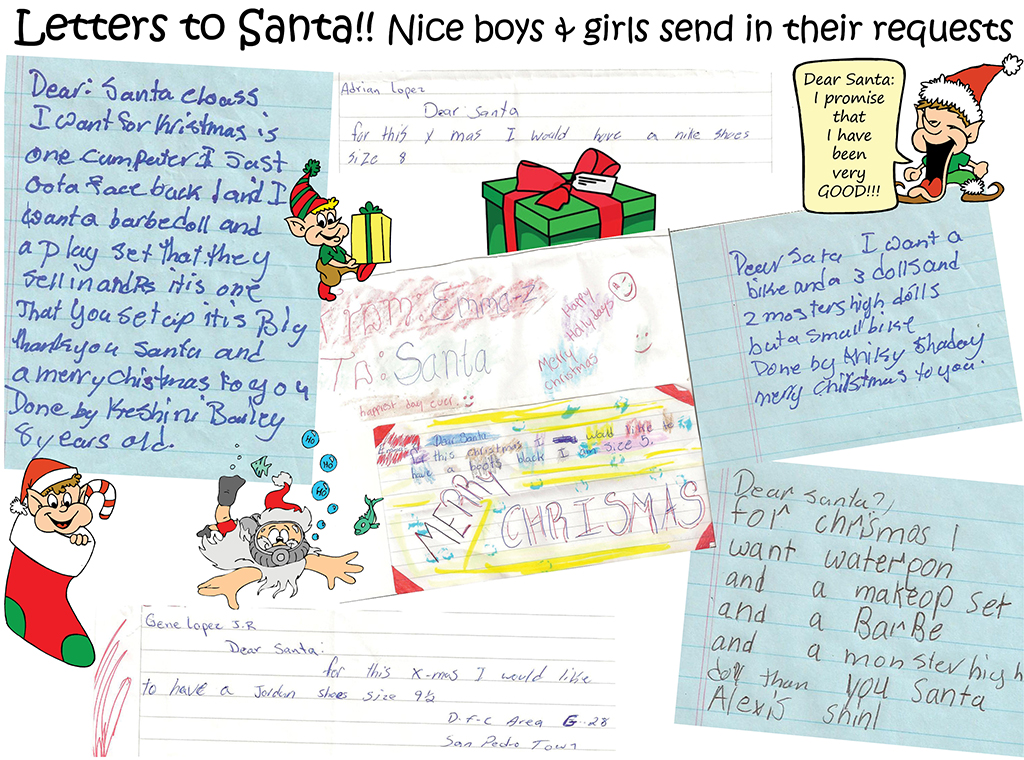 Letters to Santa!! Nice boys & girls send in their requests
Dear: Santa cloass
I want for Khristmas is
one cumpeuter I Jast
Gota face back 1 and I
want a barbedoll and
a play set that they
sell in and Rs it is one
That you set cip it is Bly
thankyou Santa and
a merry christmas to you
Done by Keshini Bailey
8 years old.
Adrian Lopez
Dear Santa
for this x mas I would have a nike shoes
size 8
Dear Santa:
I promise
that
I have
been
very
GOOD!!!
From: Emma-2
To: Santa
Happy
Holly days
Merry
christmas
happiest day ever
Dear Santa
for this christmas I would like to
have a boots black I size 5.
MERRY
CHRISMAS
Dear Sata I want a
bike and a 3 dolls and
2 mosters high dolls
but a small bike
Done by Shaday
merry christmas to you
HO
HO
HO
Dear santa?,
for chrismas I
want waterpon
and a makeop set
and a BarBe
and a monster high
doll than you Santa
Alexis Shinl
Gene Lopez J.R
Dear Santa:
for this x-mas I would like
to have a Jordan shoes size 9½
D.F.C Area G-28
San Pedro Town